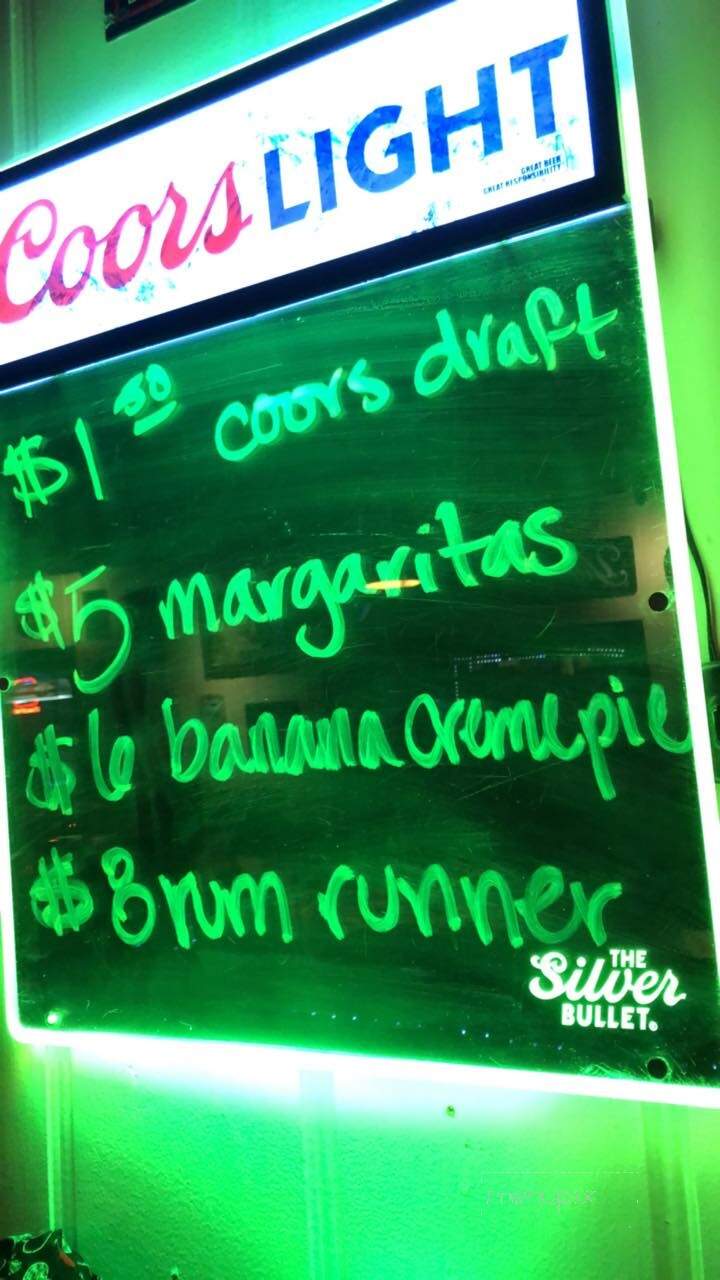 Coors LIGHT
GREAT BEER
GREAT RESPONSIBILITY
$1 50 coors draft
$5 margaritas
$6 banana creme pie
$8 rum runner
THE
Silver
BULLET.